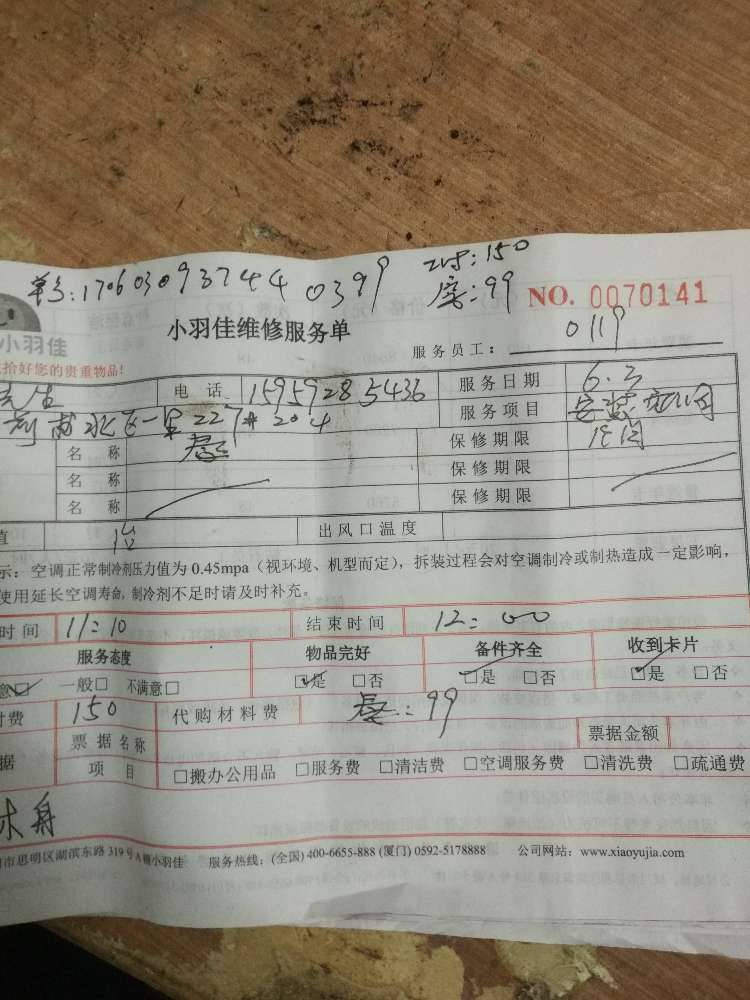 单号:170603093744 0399 :150
:99
NO. 0070141
小羽佳
小羽佳维修服务单
服务员工: 0119
拾好您的贵重物品!
先生 电话 15959285436 服务日期 6.3
前埔北区一里227#204 服务项目 安装
名称 保修期限
名称 保修期限
名称 保修期限
值 出风口温度
示: 空调正常制冷剂压力值为 0.45mpa (视环境、机型而定), 拆装过程会对空调制冷或制热造成一定影响,
使用延长空调寿命, 制冷剂不足时请及时补充。
时间 11:10 结束时间 12:00
服务态度 物品完好 备件齐全 收到卡片
意☑ 一般□ 不满意□ ☑是 □否 ☑是 □否 ☑是 □否
付费 150 代购材料费 :99
票据名称 票据金额
据 项目 □搬办公用品 □服务费 □清洁费 □空调服务费 □清洗费 □疏通费
市思明区湖滨东路 319 号A 小羽佳 服务热线: (全国) 400-6655-888 (厦门) 0592-5178888 公司网站: www.xiaoyujia.com